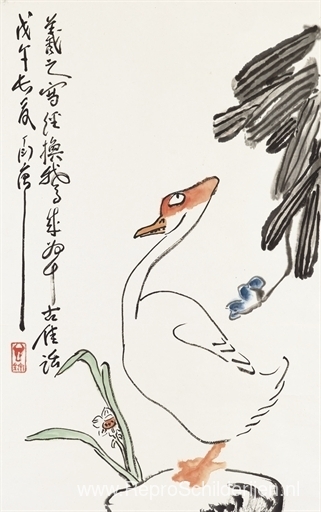 羲之寫經換鵝成為千古佳話
戊午長夏
www.ReproSchilderijen.nl